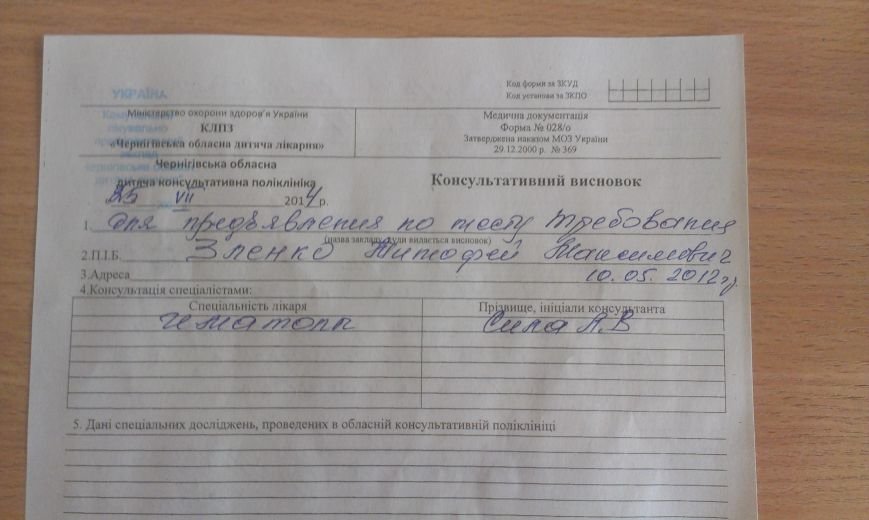 УКРАЇНА
Код форми за ЗКУД
Код установи за ЗКПО
Міністерство охорони здоров'я України
КЛПЗ
«Чернігівська обласна дитяча лікарня»
Медична документація
Форма № 028/о
Затверджена наказом МОЗ України
29.12.2000 р. № 369
Чернігівська обласна
дитяча консультативна поліклініка
25 VII 2014 р.
Консультативний висновок
1. для предъявления по месту требования
(назва закладу, куди видається висновок)
2.П.І.Б. Зленко Тимофей Максимович
3.Адреса 10.05.2012 г.
4.Консультація спеціалістами:
Спеціальність лікаря
Прізвище, ініціали консультанта
Сила А.В
5. Дані спеціальних досліджень, проведених в обласній консультативній поліклініці